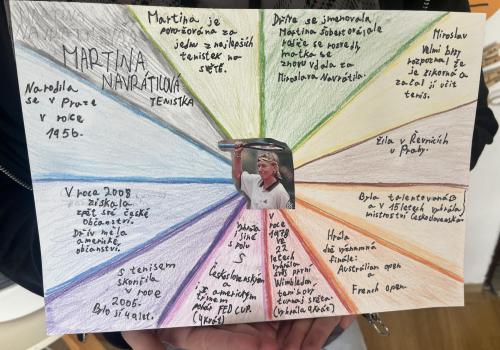 MARTINA
NAVRÁTILOVÁ
TENISTKA
Martina je
považována za
jednu z nejlepších
tenistek na
světě.
Dříve se jmenovala
Martina Šubertová, ale
rodiče se rozvedli,
matka se
znovu vdala za
Miroslava Navrátila.
Miroslav
velmi brzy
rozpoznal že
je šikovná a
začal jí učit
tenis.
Žila v Řevnicích
u Prahy.
Byla talentovaná
a v 15 letech vyhrála
mistrovství Československa
Hrála
dvě významná
finále:
Australian open
a
French open.
V
roce
1978
ve
22
letech
vyhrála
svůj první
Wimbledon,
tenisový
turnaj světa.
(vyhrála 9krát)
Vyhrála
i jiné
s polu
S
Československým
a
s americkým
týmem
pohár FED CUP.
(4krát)
S tenisem
skončila
v roce
2006.
Bylo jí 49 let.
V roce 2008
získala
zpět své české
občanství.
Dřív měla
americké
občanství.
Narodila
se v Praze
v roce
1956.